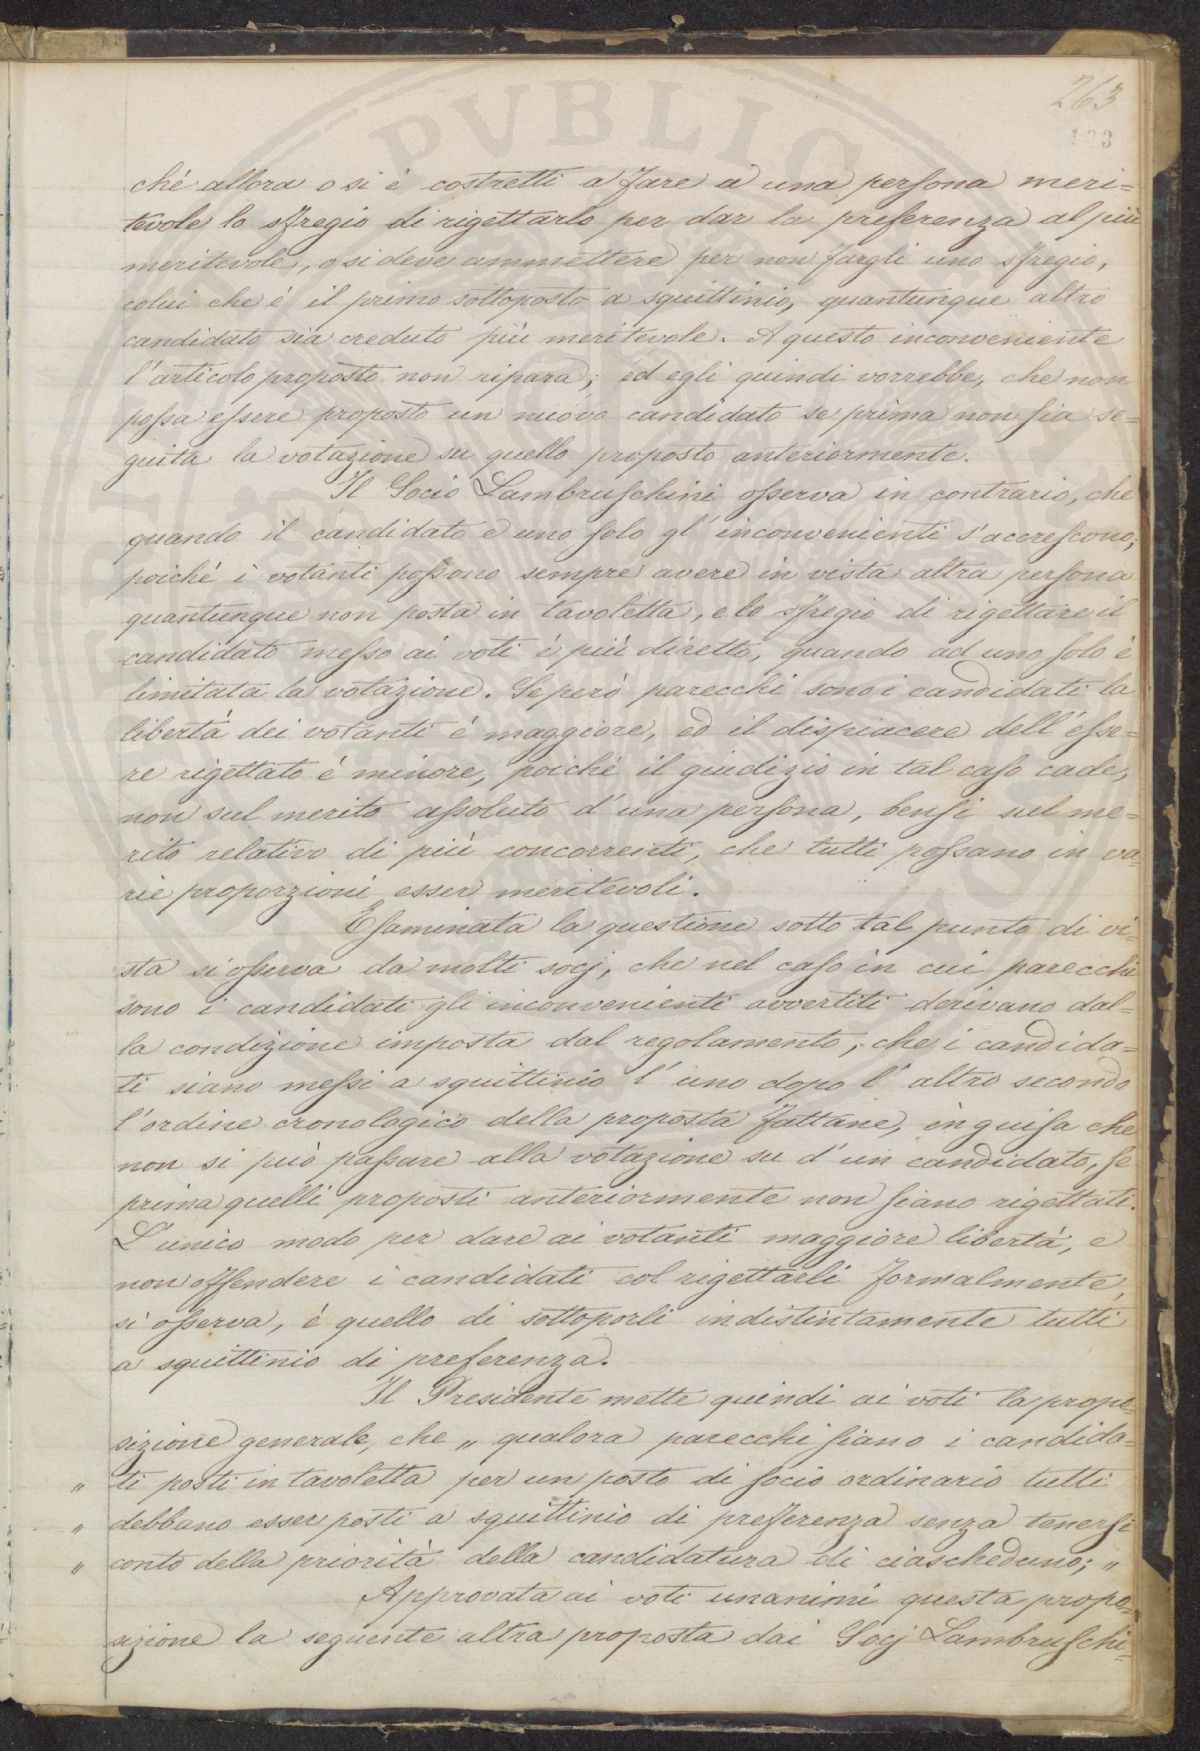 263
133
ché allora o si è costretti a fare a una persona meri-
tevole lo sfregio di rigettarlo per dar la preferenza al più
meritevole, o si deve ammettere per non fargli uno sfregio,
colui che è il primo sottoposto a squittinio, quantunque altro
candidato sia creduto più meritevole. A questo inconveniente
l'articolo proposto non ripara; ed egli quindi vorrebbe, che non
possa essere proposto un nuovo candidato se prima non sia se-
guita la votazione su quello proposto anteriormente.
Il Socio Lambruschini osserva in contrario, che
quando il candidato è uno solo gl'inconvenienti s'accrescono;
poiché i votanti possono sempre avere in vista altra persona
quantunque non posta in tavoletta, e lo sfregio di rigettare il
candidato messo ai voti è più diretto, quando ad uno solo è
limitata la votazione. Se però parecchi sono i candidati la
libertà dei votanti è maggiore, ed il dispiacere dell'esse-
re rigettato è minore, poiché il giudizio in tal caso cade,
non sul merito assoluto d'una persona, bensi sul me-
rito relativo di più concorrenti, che tutti possano in va-
rie proporzioni esser meritevoli.
Esaminata la questione sotto tal punto di vi-
sta si osserva da molti socj, che nel caso in cui parecchi
sono i candidati gli inconvenienti avvertiti derivano dal-
la condizione imposta dal regolamento, che i candida-
ti siano messi a squittinio l'uno dopo l'altro secondo
l'ordine cronologico della proposta fattane, in guisa che
non si può passare alla votazione su d'un candidato, se
prima quelli proposti anteriormente non siano rigettati.
L'unico modo per dare ai votanti maggiore libertà, e
non offendere i candidati col rigettarli formalmente,
si osserva, è quello di sottoporli indistintamente tutti
a squittinio di preferenza.
Il Presidente mette quindi ai voti la propo-
sizione generale, che „ qualora parecchi siano i candida-
„ ti posti in tavoletta per un posto di socio ordinario tutti
„ debbano esser posti a squittinio di preferenza senza tenersi
„ conto della priorità della candidatura di ciascheduno; „
Approvata ai voti unanimi questa propo-
sizione la seguente altra proposta dai Socj Lambruschi-